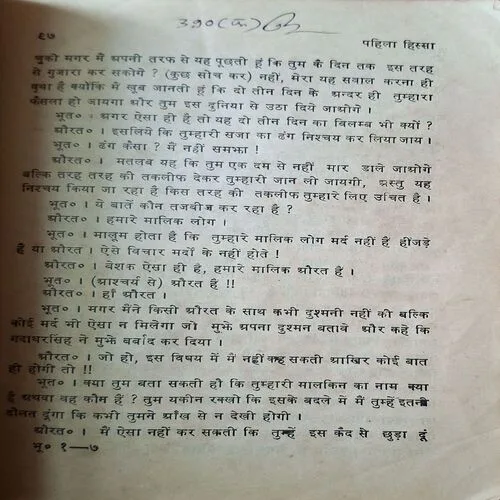 ३९०(क)
९७ पहिला हिस्सा
चुकी मगर मैं अपनी तरफ से यह पूछती हूं कि तुम कै दिन तक इस तरह
से गुजारा कर सकोगे ? (कुछ सोच कर) नहीं, मेरा यह सवाल करना ही
वृथा है क्योंकि मैं खूब जानती हूं कि दो तीन दिन के अन्दर ही तुम्हारा
फैसला हो जायगा और तुम इस दुनिया से उठा दिये जाओगे ।
भूत० । अगर ऐसा ही है तो यह दो तीन दिन का बिलम्ब भी क्यों ?
औरत० । इसलिये कि तुम्हारी सजा का ढंग निश्चय कर लिया जाय ।
भूत० । ढंग कैसा ? मैं नहीं समझा !
औरत० । मतलब यह कि तुम एक दम से नहीं मार डाले जाओगे
बल्कि तरह तरह की तकलीफ देकर तुम्हारी जान ली जायगी, अस्तु यह
निश्चय किया जा रहा है किस तरह की तकलीफ तुम्हारे लिए उचित है ।
भूत० । ये बातें कौन तजबीज कर रहा है ?
औरत० । हमारे मालिक लोग ।
भूत० । मालूम होता है कि तुम्हारे मालिक लोग मर्द नहीं हैं हींजड़े
हैं या औरत । ऐसे विचार मर्दों के नहीं होते !
औरत० । बेशक ऐसा ही है, हमारे मालिक औरत हैं ।
भूत० । (आश्चर्य से) औरत हैं !!
औरत० । हाँ औरत ।
भूत० । मगर मैंने किसी औरत के साथ कभी दुश्मनी नहीं की बल्कि
कोई मर्द भी ऐसा न मिलेगा जो मुझे अपना दुश्मन बतावे और कहे कि
गदाधरसिंह ने मुझे बर्बाद कर दिया ।
औरत० । जो हो, इस विषय में मैं नहीं कह सकती आखिर कोई बात
ही होगी तो !!
भूत० । क्या तुम बता सकती हो कि तुम्हारी मालकिन का नाम क्या
है अथवा वह कौन है ? तुम यकीन रक्खो कि इसके बदले में मैं तुम्हें इतनी
दौलत दूंगा कि कभी तुमने आँख से न देखी होगी ।
औरत० । मैं ऐसा नहीं कर सकती कि तुम्हें इस कैद से छुड़ा दूं
भू० १—७